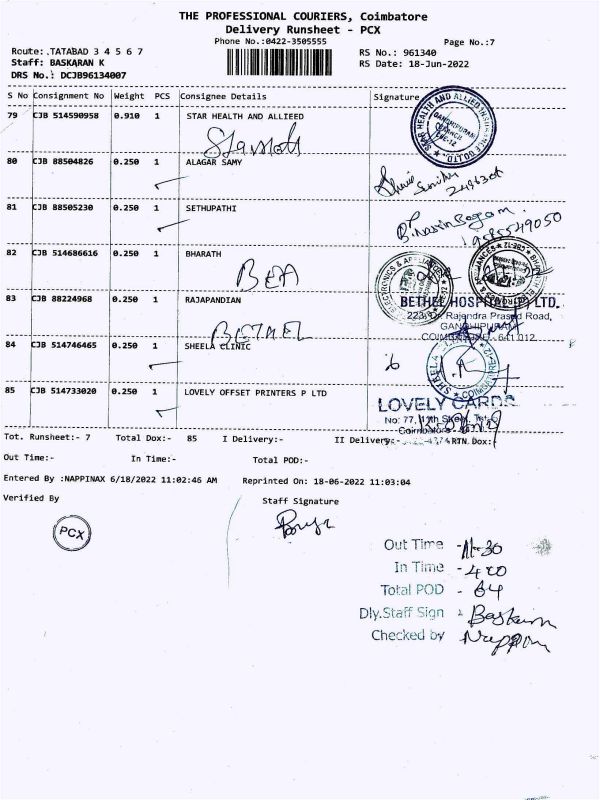 THE PROFESSIONAL COURIERS, Coimbatore
Delivery Runsheet - PCX
Phone No.:0422-3505555
Page No.:7
Route: .TATABAD 3 4 5 6 7
RS No.: 961340
Staff: BASKARAN K
RS Date: 18-Jun-2022
DRS No.: DCJB96134007
S No Consignment No Weight PCS Consignee Details Signature
79 CJB 514590958 0.910 1 STAR HEALTH AND ALLIEED
80 CJB 88504826 0.250 1 ALAGAR SAMY
249630
81 CJB 88505230 0.250 1 SETHUPATHI
82 CJB 514686616 0.250 1 BHARATH
BEA
83 CJB 88224968 0.250 1 RAJAPANDIAN
BETHEL HOSPITAL LTD.
223, Dr. Rajendra Prasad Road,
GANDHIPURAM
COIMBATORE - 641 012
BETHEL
84 CJB 514746465 0.250 1 SHEELA CLINIC
85 CJB 514733020 0.250 1 LOVELY OFFSET PRINTERS P LTD
LOVELY CARDS
Tot. Runsheet:- 7 Total Dox:- 85 I Delivery:- II Delivery:- RTN.Dox:
Out Time:- In Time:- Total POD:-
Entered By :NAPPINAX 6/18/2022 11:02:46 AM Reprinted On: 18-06-2022 11:03:04
Verified By Staff Signature
PCX
Out Time - 11-30
In Time - 4.00
Total POD - 64
Dly.Staff Sign : Baskaran
Checked by